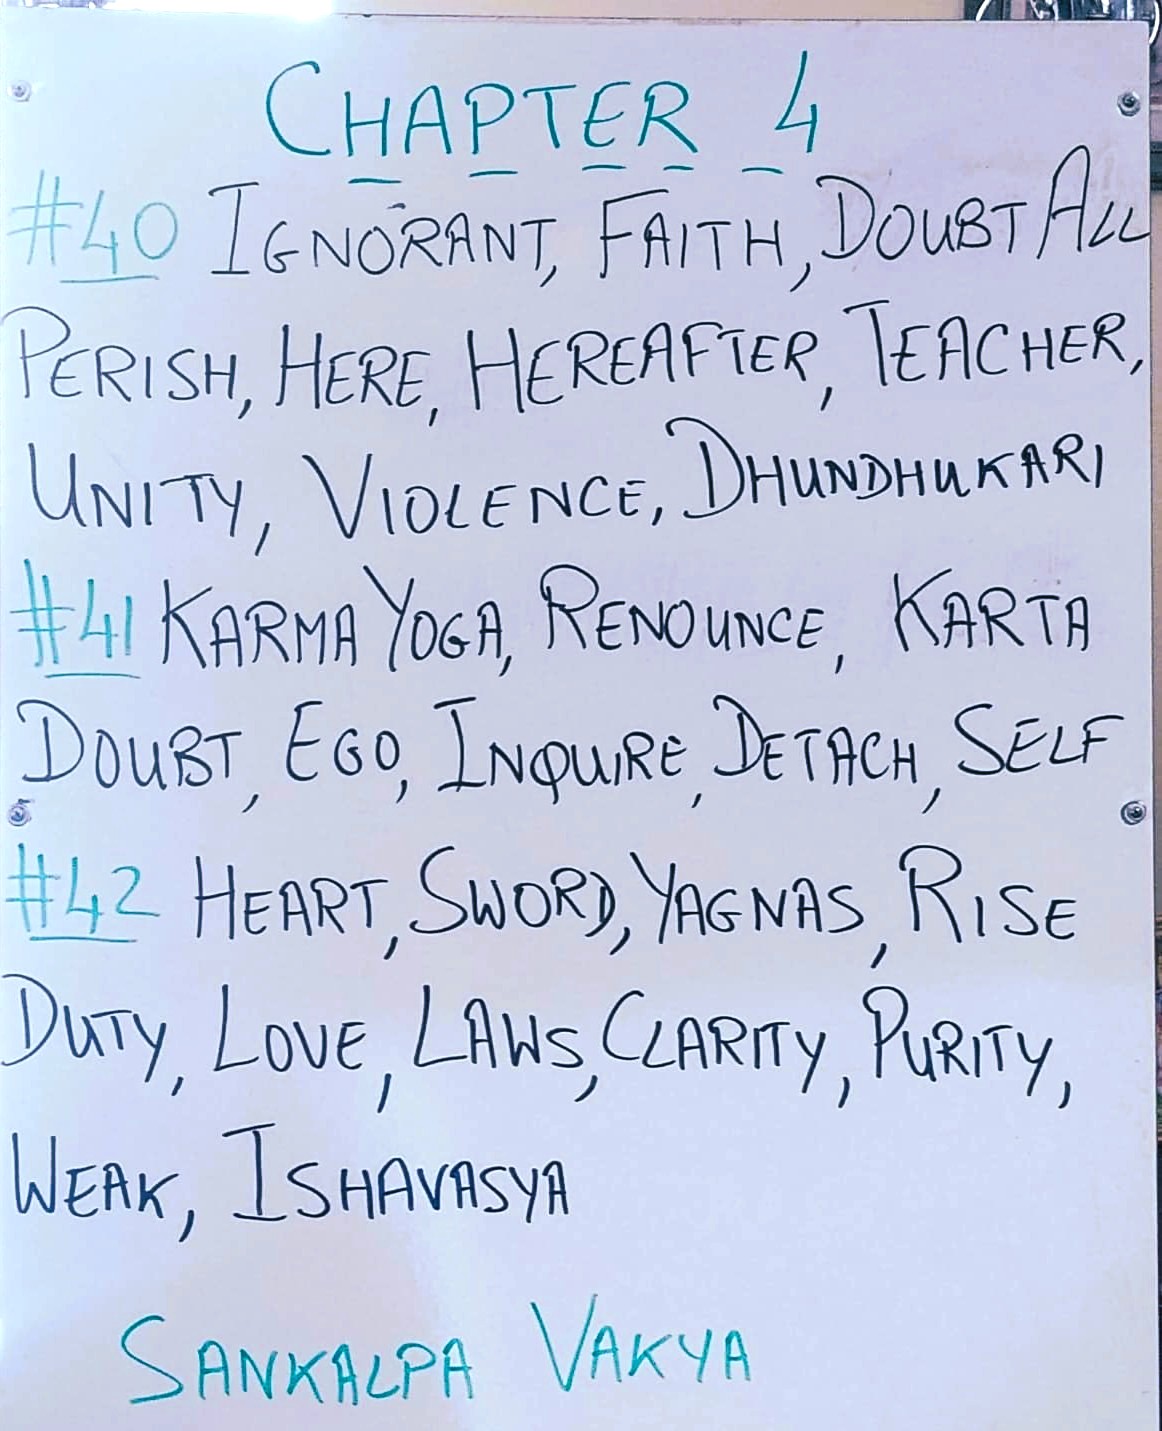 CHAPTER 4
#40 IGNORANT, FAITH, DOUBT ALL
PERISH, HERE, HEREAFTER, TEACHER,
UNITY, VIOLENCE, DHUNDHUKARI
#41 KARMA YOGA, RENOUNCE, KARTA
DOUBT, EGO, INQUIRE, DETACH, SELF
#42 HEART, SWORD, YAGNAS, RISE
DUTY, LOVE, LAWS, CLARITY, PURITY,
WEAK, ISHAVASYA
SANKALPA VAKYA